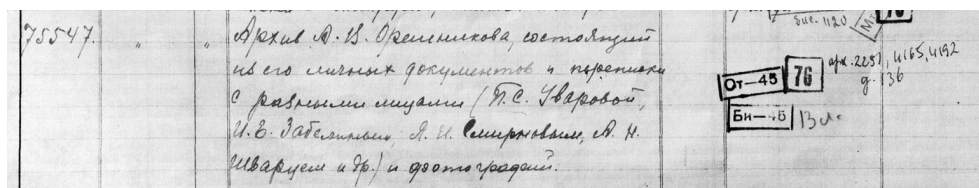 75547. " " Архив А. В. Орешникова, состоящий
из его личных документов и переписки
с разными лицами (П. С. Уваровой,
И. Е. Забелиным, Я. И. Смирновым, А. Н.
Шварцем и др.) и фотографий.
Бие. 1120
От—45 76 арх. 2257, 4165, 4192
д. 136
Би—45 13 л.